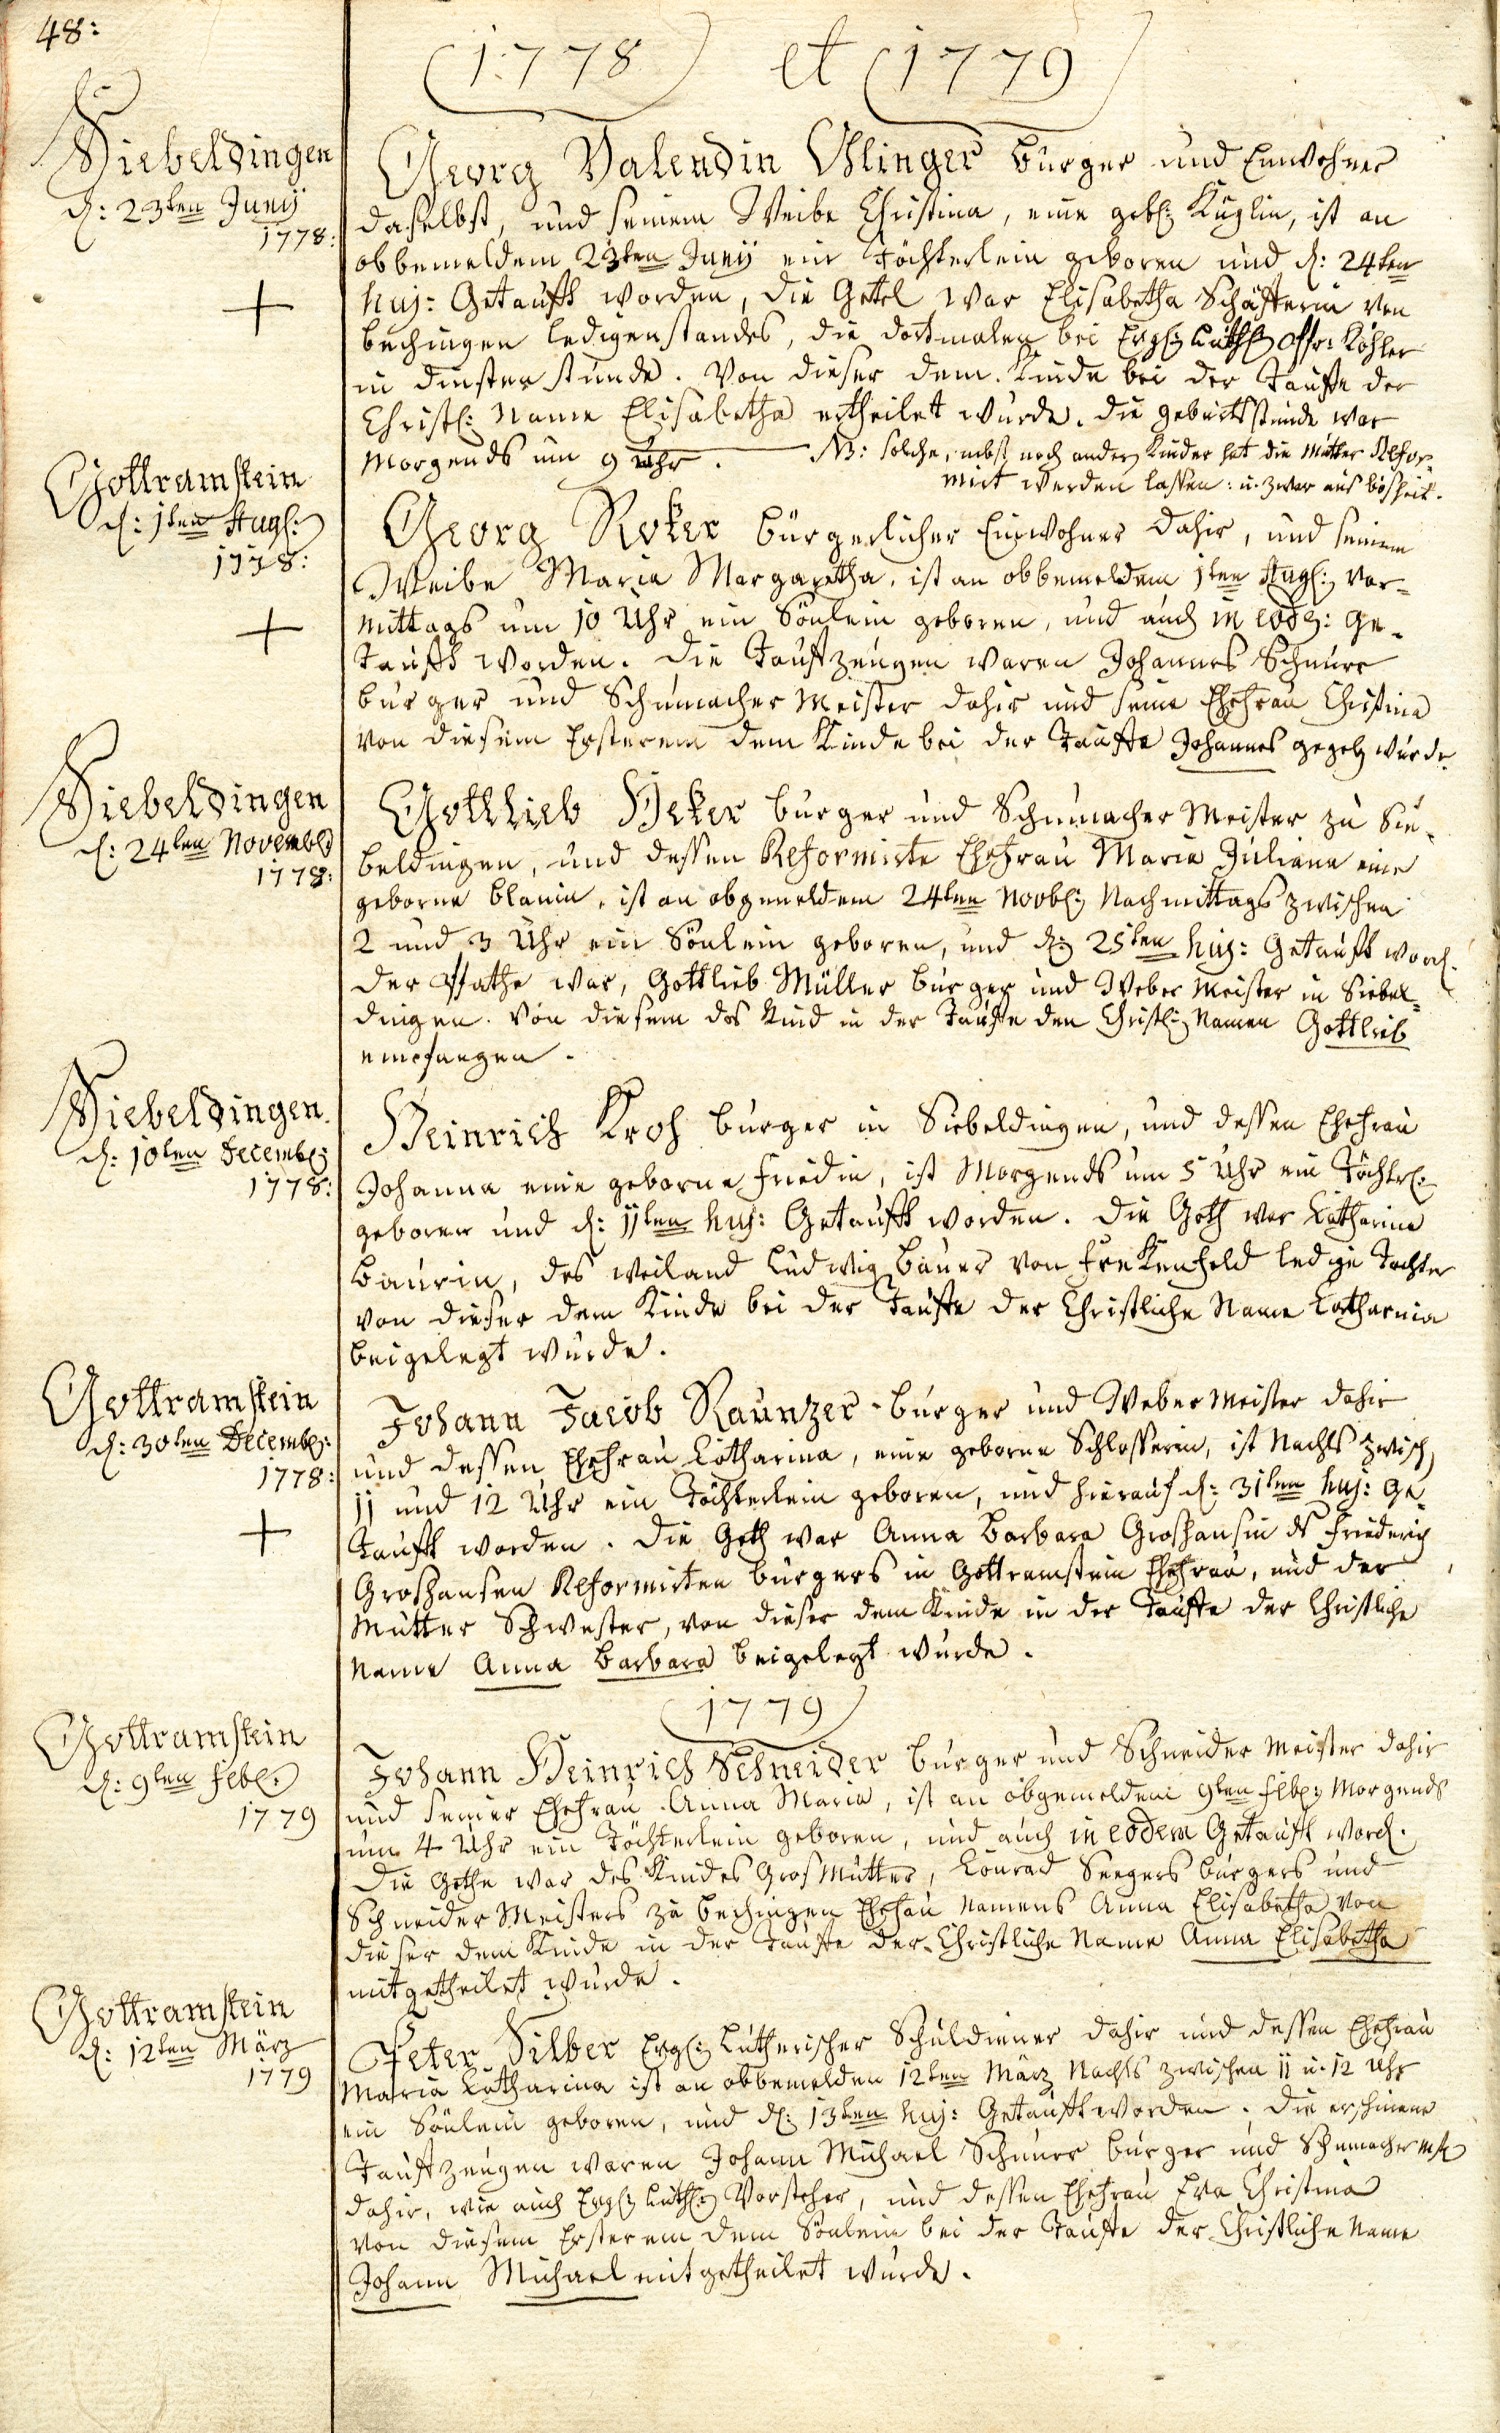 48:
1778 et 1779
Siebeldingen
d: 23ten Junij
1778:
Georg Valendin Öhlinger burger und Einwohner
daselbst, und seinem Weibe Christina, eine geb: Küglin, ist an
obbemeldem 23ten Junij ein Töchterlein geboren und d: 24ten
huj: Getaufft worden, die Getel war Elisabetha Schäfferin von
bechingen ledigenstandes, die dortmalen bei Evg: Luth: Köhler
in diensten stunde. Von dieser dem Kinde bei der Tauffe der
Christl: Name Elisabetha ertheilet wurde. die geburtsstunde war
Morgends um 9 Uhr. NB: solche, nebst noch andern Kinder hat die Mutter Refor-
mirt werden lassen: u. zwar aus bosheit.
Gottramstein
d: 1ten Aug:
1778:
Georg Roker bürgerlicher Einwohner dahir, und seinem
Weibe Maria Margaretha, ist an obbemeldem 1ten Aug: Vor-
mittags um 10 Uhr ein Sönlein geboren, und auch in eod: ge-
taufft worden. Die Taufzeugen waren Johannes Schnurr
burger und Schumacher Meister dahir und seine Ehefrau Christina
von diesem Ersterem dem Kinde bei der Tauffe Johannes gegeben wurde.
Siebeldingen
d: 24ten Novemb:
1778:
Gottlieb Heker burger und Schumacher Meister zu Sie-
beldingen, und dessen Reformirte Ehefrau Maria Juliana eine
geborne blanin, ist an obgemeldem 24ten Novb: Nachmittags zwischen
2 und 3 Uhr ein Sönlein geboren, und d: 25ten huj: Getaufft word.
Der Pfathe war, Gottlieb Müller burger und Weber Meister in Siebel-
dingen. Von diesem das Kind in der Tauffe den Christl: Namen Gottlieb
empfangen.
Siebeldingen
d: 10ten Decemb:
1778:
Heinrich Kroh burger in Siebeldingen, und dessen Ehefrau
Johanna eine geborne Friedin, ist Morgends um 5 Uhr ein Töchterl:
geboren und d: 11ten huj: Getaufft worden. Die Goth war Catharina
Baurin, des weiland Ludwig Bauer von Frekenfeld ledige Tochter
von dieser dem Kinde bei der Tauffe der Christliche Name Catharina
beigelegt wurde.
Gottramstein
d: 30ten Decemb:
1778:
Johann Jacob Raunzer burger und Weber Meister dahir
und dessen Ehefrau Catharina, eine geborne Schlosserin, ist Nachts zwisch
11 und 12 Uhr ein Töchterlein geboren, und hierauf d: 31ten huj: ge-
taufft worden. Die Goth war Anna Barbara Groshansin ds Friederich
Groshansen Reformirten burgers in Gottramstein Ehefrau, und der
Mutter Schwester, von dieser dem Kinde in der Tauffe der Christliche
Name Anna Barbara beigelegt wurde.
1779
Gottramstein
d: 9ten feb:
1779
Johann Heinrich Schneider burger und Schneider Meister dahir
und seiner Ehefrau Anna Maria, ist an obgemeldem 9ten feb: Morgends
um 4 Uhr ein Töchterlein geboren, und auch in eodem Getaufft word.
Die Gothe war des Kindes Gros Mutter, Conrad Seegers burgers und
Schneider Meisters zu bechingen Ehefrau Namens Anna Elisabetha von
dieser dem Kinde in der Tauffe der Christliche Name Anna Elisabetha
mitgetheilet wurde.
Gottramstein
d: 12ten März
1779
Peter Silber Evg: Lutherischer Schuldiener dahir und dessen Ehefrau
Maria Catharina ist an obbemelden 12ten März Nachts zwischen 11 u. 12 Uhr
ein Sönlein geboren, und d: 13ten huj: Getaufft worden. Die erschienene
Taufzeugen waren Johann Michael Schnurr burger und Schumacher Mstr
dahir, wie auch Evg: Luth: Vorsteher, und dessen Ehefrau Eva Christina
von diesem Ersterem dem Sönlein bei der Tauffe der Christliche Name
Johann Michael mitgetheilet wurde.